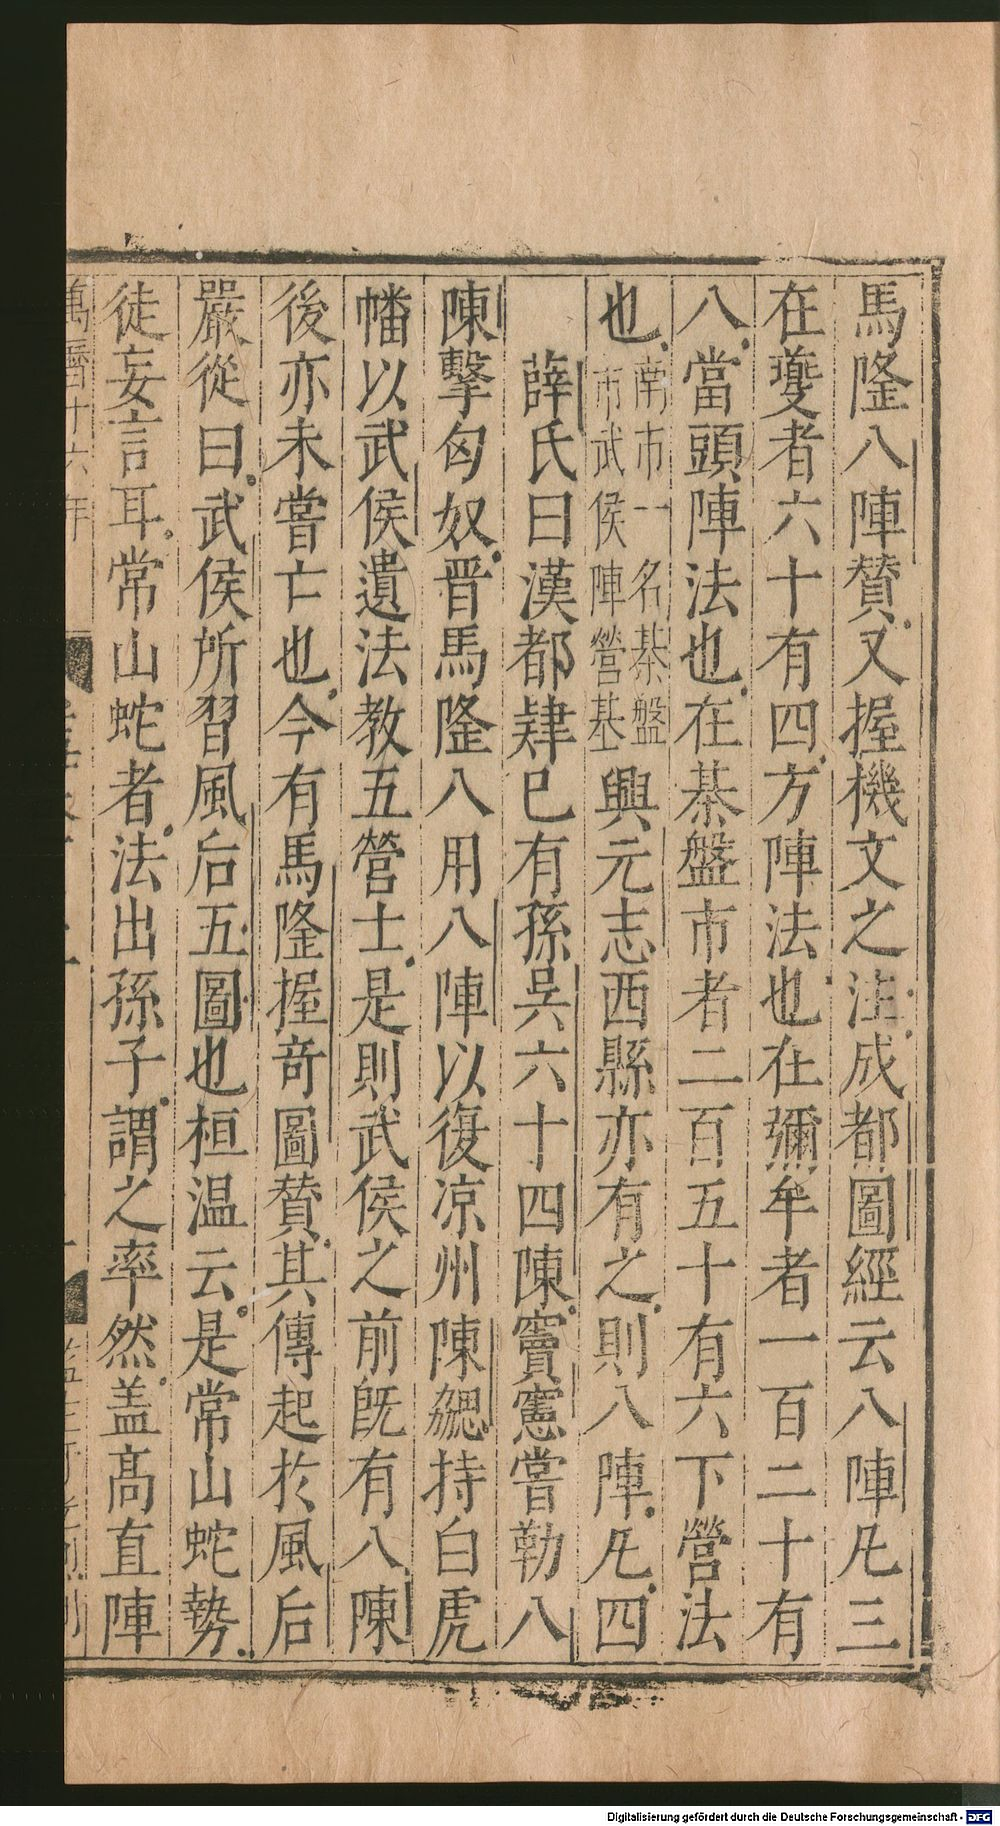 馬隆八陣贊又握機文之注成都圖經云八陣凡三
在夔者六十有四方陣法也在彌牟者一百二十有
八當頭陣法也在棊盤市者二百五十有六下營法
也南市一名棊盤市武侯陣營基興元志西縣亦有之則八陣凡四
薛氏曰漢都肄已有孫吳六十四陳竇憲嘗勒八
陳擊匈奴晋馬隆八用八陣以復凉州陳勰持白虎
幡以武侯遺法教五營士是則武侯之前旣有八陳
後亦未嘗亡也今有馬隆握竒圖贊其傳起於風后
嚴從曰武侯所習風后五圖也桓温云是常山蛇勢
徒妄言耳常山蛇者法出孫子謂之率然盖高直陣
萬曆十六年
Digitalisierung gefördert durch die Deutsche Forschungsgemeinschaft - DFG